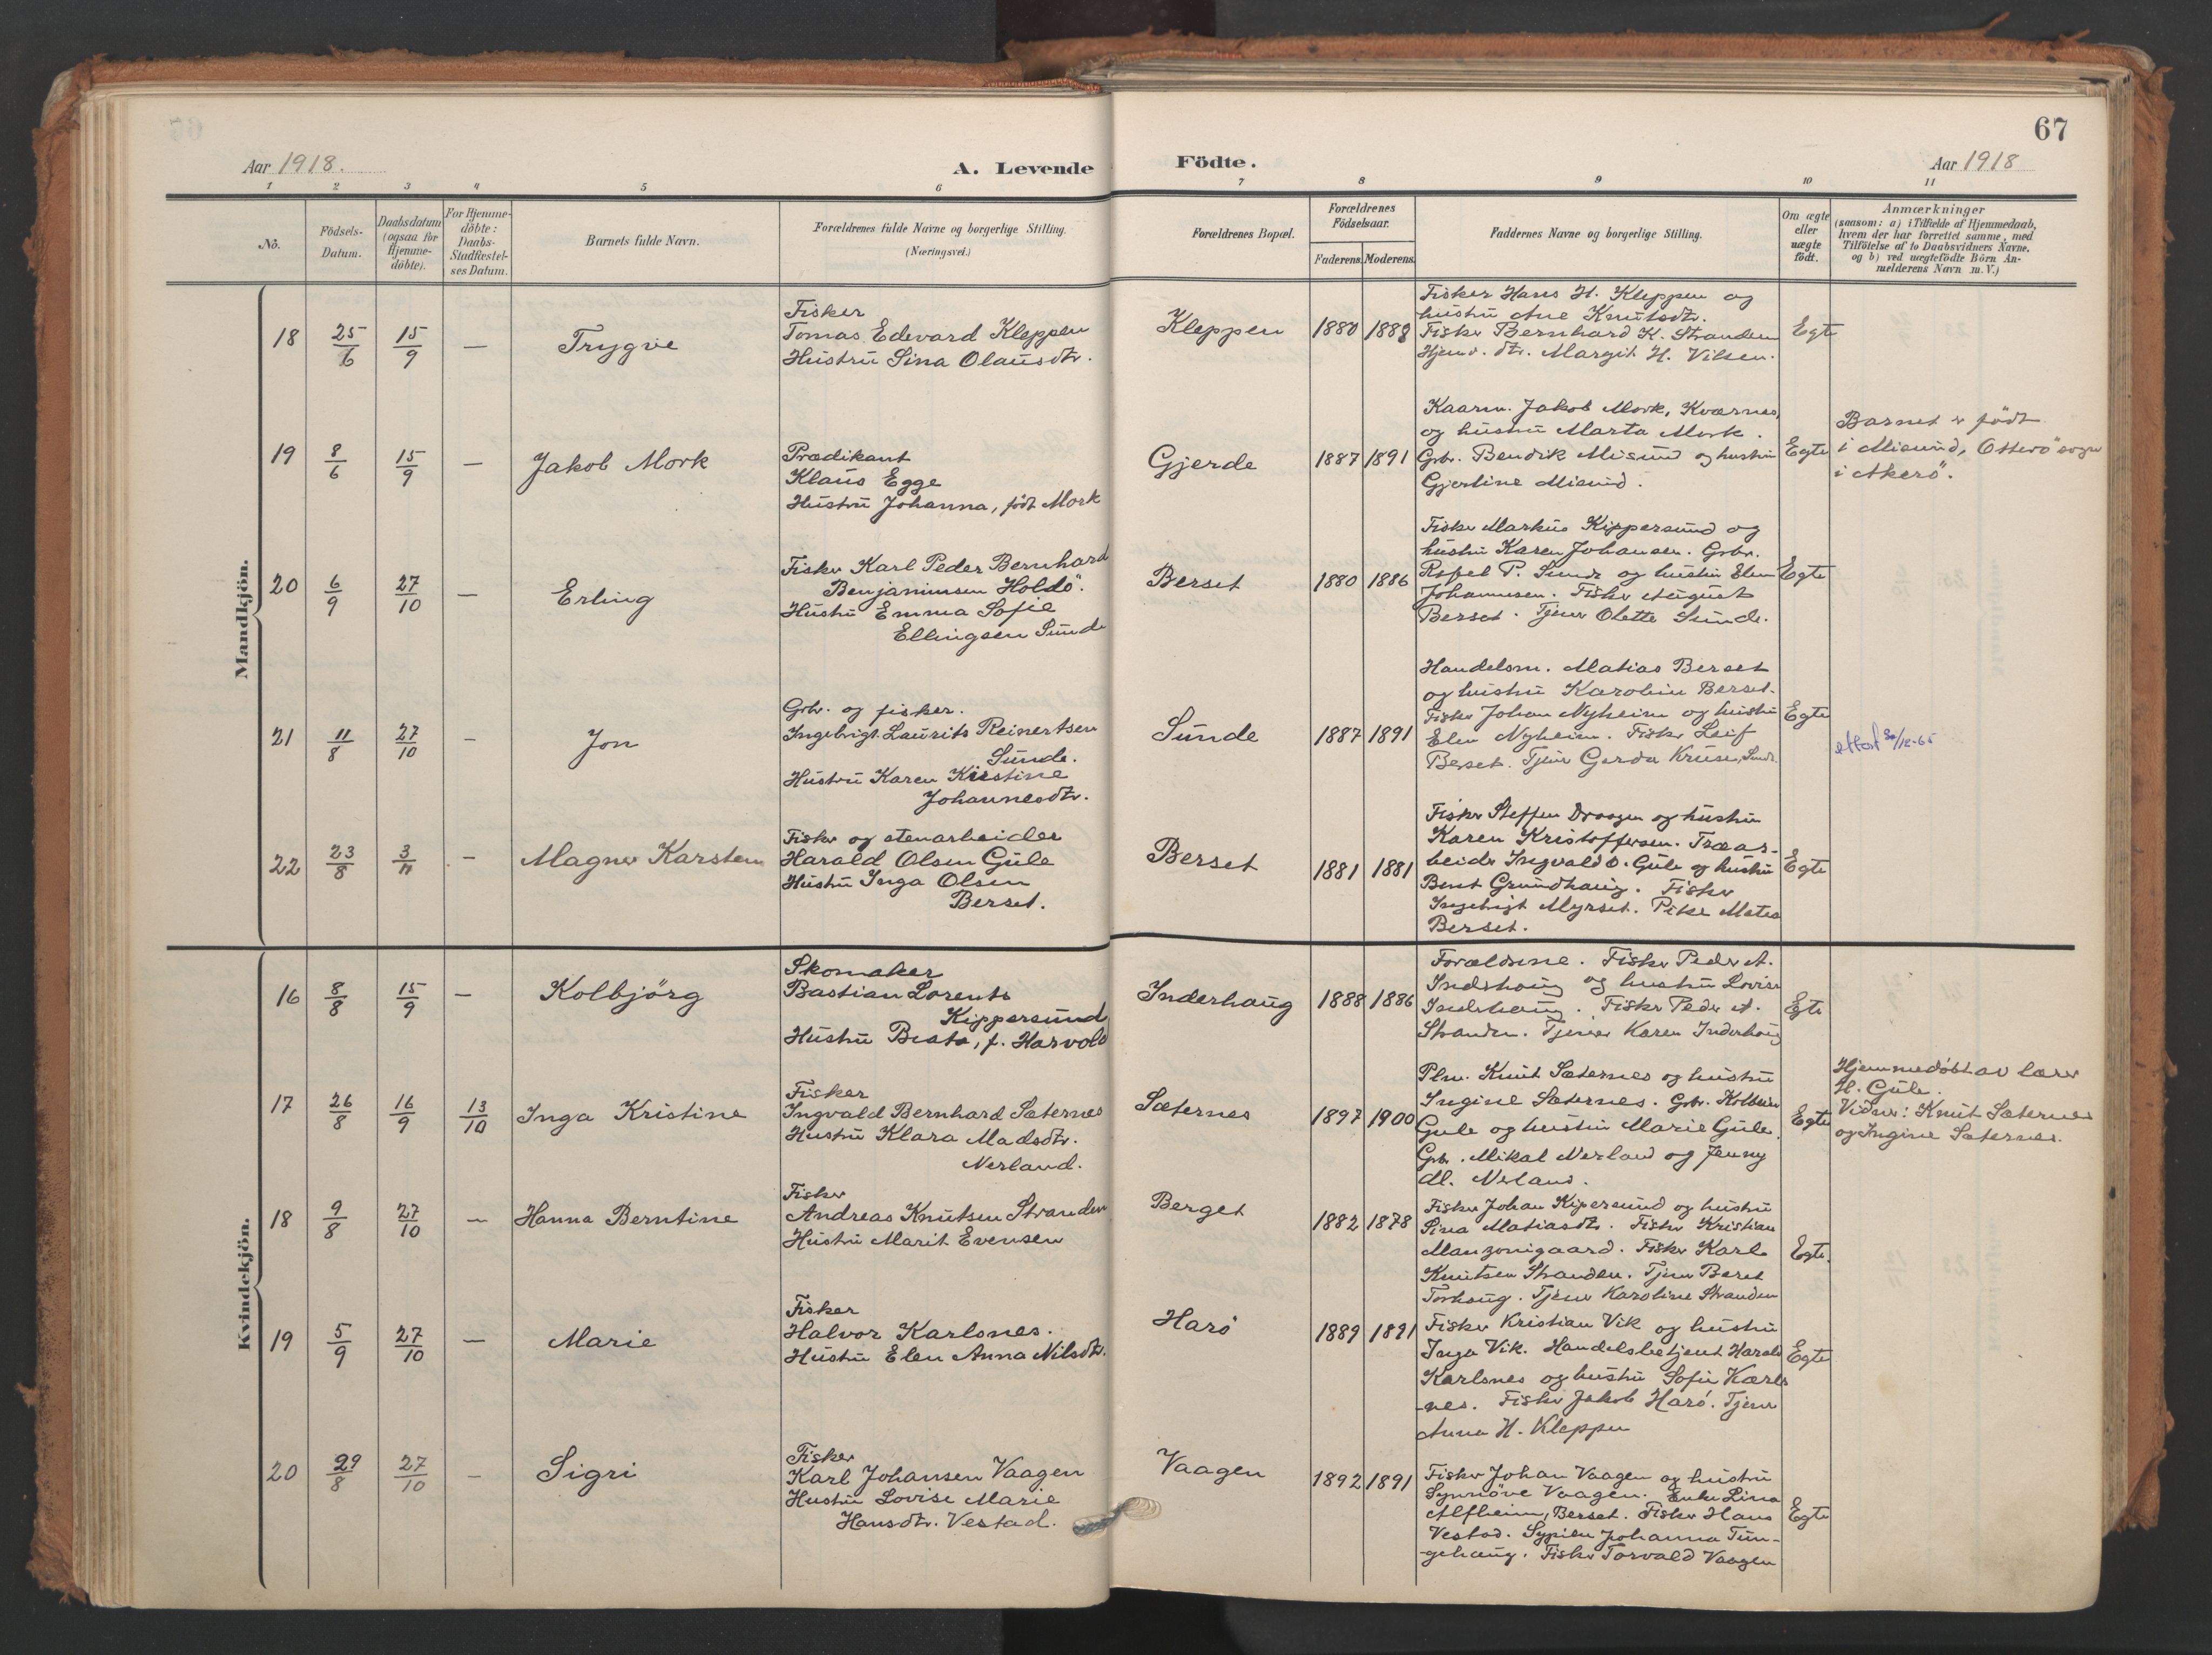 67
Aar 1918.
A. Levende Födte.
Aar 1918
1 2 3 4 5 6 7 8 9 10 11
No.
Födsels-
Datum.
Daabsdatum
(ogsaa for
Hjemme-
döbte).
For Hjemme-
döbte:
Daabs-
Stadfæstel-
ses Datum.
Barnets fulde Navn.
Forældrenes fulde Navne og borgerlige Stilling.
(Næringsvei.)
Forældrenes Bopæl.
Forældrenes
Födselsaar.
Faderens. Moderens.
Faddernes Navne og borgerlige Stilling.
Om ægte
eller
uægte
födt.
Anmærkninger
(saasom: a) i Tilfælde af Hjemmedaab,
hvem der har forrettet samme, med
Tilföielse af to Daabsvidners Navne,
og b) ved uægtefödte Börn An-
melderens Navn m. V.)
Mandkjön.
18 25/6 15/9 — Trygve
Fisker
Tomas Edevard Kleppen
Hustru Sina Olausdtr.
Kleppen 1880 1888
Fisker Hans H. Kleppen og
hustru Ane Knutsdtr.
Fisker Bernhard K. Stranden
Hjemv. dtr. Margit H. Vilsen.
Egte
19 8/6 15/9 — Jakob Mork
Prædikant
Klaus Egge
Hustru Johanna, født Mork
Gjerde 1887 1891
Kaarm. Jakob Mork, Kværnes
og hustru Marta Mork.
Grbr. Bendik Misund og hustru
Gjertine Misund.
Egte
Barnet er født
i Misund, Otterö sogn
i Akerö.
20 6/9 27/10 — Erling
Fisker Karl Peder Bernhard
Benjaminsen Holdö.
Hustru Emma Sofie
Ellingsen Sunde
Berset 1880 1886
Fisker Markus Kippersund og
hustru Karen Johansen. Grbr.
P. Sunde og hustru Elen
Johannesen. Fisker August
Berset. Tjener Olette Sunde.
Egte
21 11/8 27/10 — Jon
Grbr. og fisker.
Ingebrigt Laurits Reinertsen
Sunde.
Hustru Karen Kirstine
Johannesdtr.
Sunde 1887 1891
Handelsm. Matias Berset
og hustru Karoline Berset.
Fisker Johan Nyheim og hustru
Elen Nyheim. Fisker Leif
Berset. Tjener Gerda Kruse, Sunde
Egte
attest 30/12-65
22 23/8 3/11 — Magner Karsten
Fisker og stenarbeider
Harald Olsen Gule
Hustru Inga Olsen
Berset.
Berset 1881 1881
Fisker Steffen Draagen og hustru
Karen Kristoffersen. Træar-
beider Ingvald O. Gule og hustru
Berit Grundhaug. Fisker
Ingebrigt Myrset. Pike Matea
Berset.
Egte
Kvindekjön.
16 8/8 15/9 — Kolbjörg
Skomaker
Bastian Lorents
Kippersund
Hustru Beata, f. Harvold
Inderhaug 1888 1886
Forældrene. Fisker Peder A.
Inderhaug og hustru Lovise
Inderhaug. Fisker Peder A.
Stranden. Tjener Karen Inderhaug
Egte
17 26/8 16/9 13/10 Inga Kristine
Fisker
Ingvald Bernhard Sæternes
Hustru Klara Madsdtr.
Nerland.
Sæternes 1897 1900
Plm. Knut Sæternes og hustru
Ingine Sæternes. Grbr. Kolbein
Gule og hustru Marie Gule.
Grbr. Mikal Nerland og Jenny
M. Nerland.
Egte
Hjemmedøbt av lærer
H. Gule.
Vidner: Knut Sæternes
og Ingine Sæternes.
18 9/8 27/10 — Hanna Berntine
Fisker
Andreas Knutsen Stranden
Hustru Marit Evensen
Berget 1882 1878
Fisker Johan Kipersund og hustru
Sina Matiasdtr. Fisker Kristian
Fisker Karl
Knutsen Stranden. Tjener Beret
Torhaug. Tjener Karoline Stranden
Egte.
19 5/9 27/10 — Marie
Fisker
Halvor Karlsnes.
Hustru Elen Anna Nilsdtr.
Harö 1889 1891
Fisker Kristian Vik og hustru
Inga Vik. Handelsbetjent Harald
Karlsnes og hustru Sofie Karls
-nes. Fisker Jakob Harö. Tjener
Anna H. Kleppen
Egte
20 29/8 27/10 — Sigri
Fisker
Karl Johansen Vaagen
Hustru Lovise Marie
Hansdtr. Vestad.
Vaagen 1892 1891
Fisker Johan Vaagen og hustru
Synnöve Vaagen. Enke Lina
Alfheim, Berset. Fisker Hans
Vestad. Sypike Johanna Tun-
gehaug. Fisker Torvald Vaagen
Egte